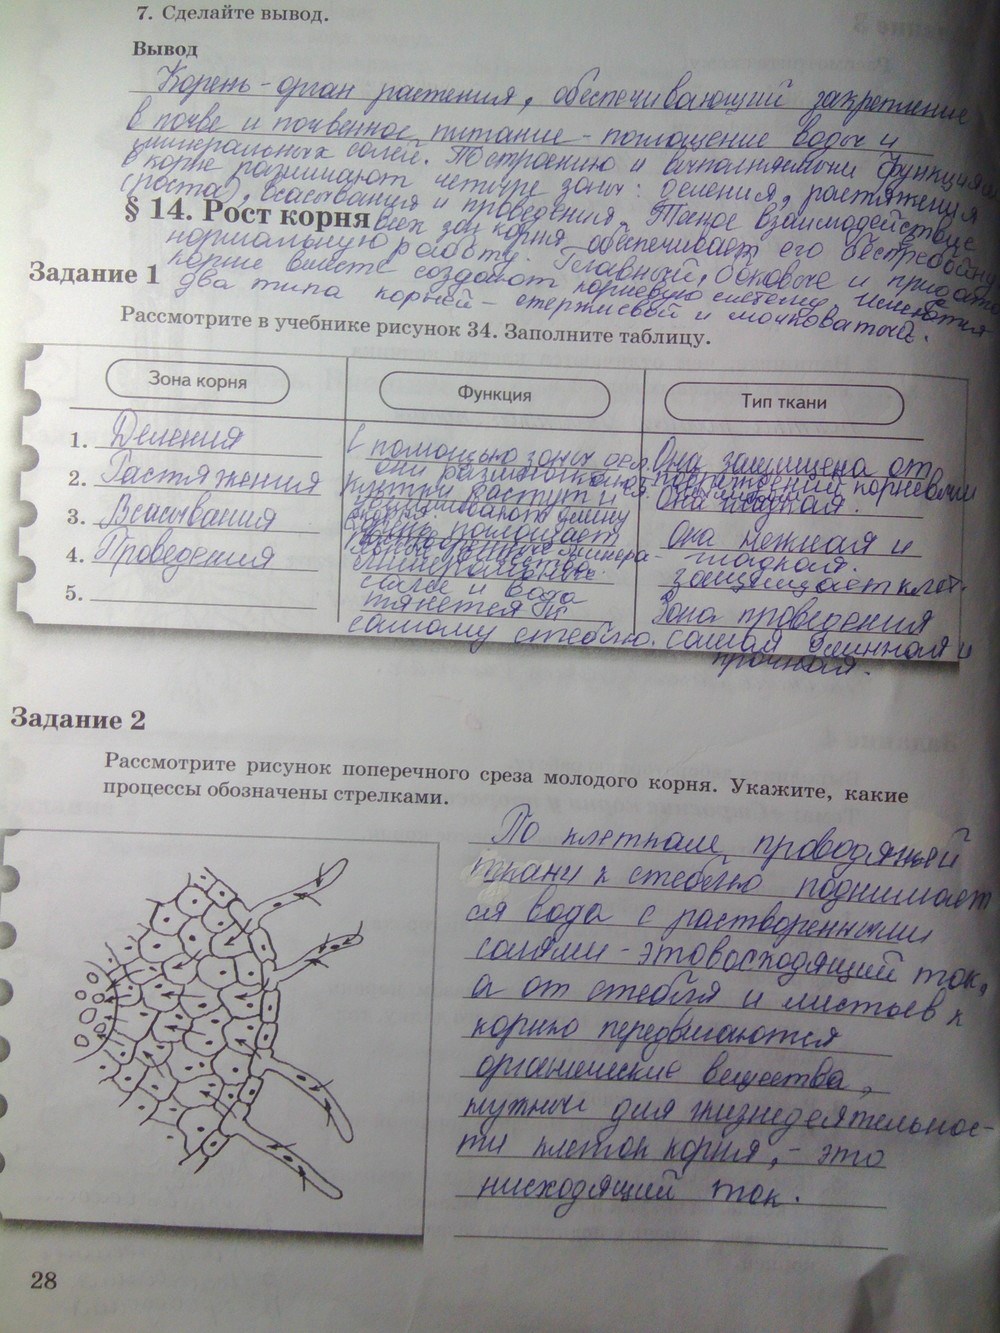 7. Сделайте вывод.
Вывод
Корень - орган растения, обеспечивающий закрепление
в почве и почвенное питание - поглощение воды и
минеральных солей. По строению и выполняемым функциям
в корне различают четыре зоны: деления, растяжения
(роста), всасывания и проведения. Такое взаимодействие
§ 14. Рост корня всех зон корня обеспечивает его бесперебойную
нормальную работу. Главный, боковые и придаточные
Задание 1
корни вместе создают корневую систему. Имеются
два типа корней - стержневой и мочковатый.
Рассмотрите в учебнике рисунок 34. Заполните таблицу.
Зона корня Функция Тип ткани
1. Деления
2. Растяжения
3. Всасывания
4. Проведения
5.
С помощью зоны дел.
они размножаются.
растут и
длину
поглощает
минера-
соли и вода
тянется к
самому стеблю.
Она защищена от
повреждений корневым
Она гладкая.
Она нежная и
гладкая.
защищает клет.
Зона проведения
самая длинная и
прочная.
Задание 2
Рассмотрите рисунок поперечного среза молодого корня. Укажите, какие
процессы обозначены стрелками.
По клеткам проводящей
ткани к стеблю поднимает
ся вода с растворенными
солями - этовосходящий ток,
а от стебля и листьев к
корню передвигаются
органические вещества,
нужные для жизнедеятельнос-
ти клеток корня, - это
нисходящий ток.
28